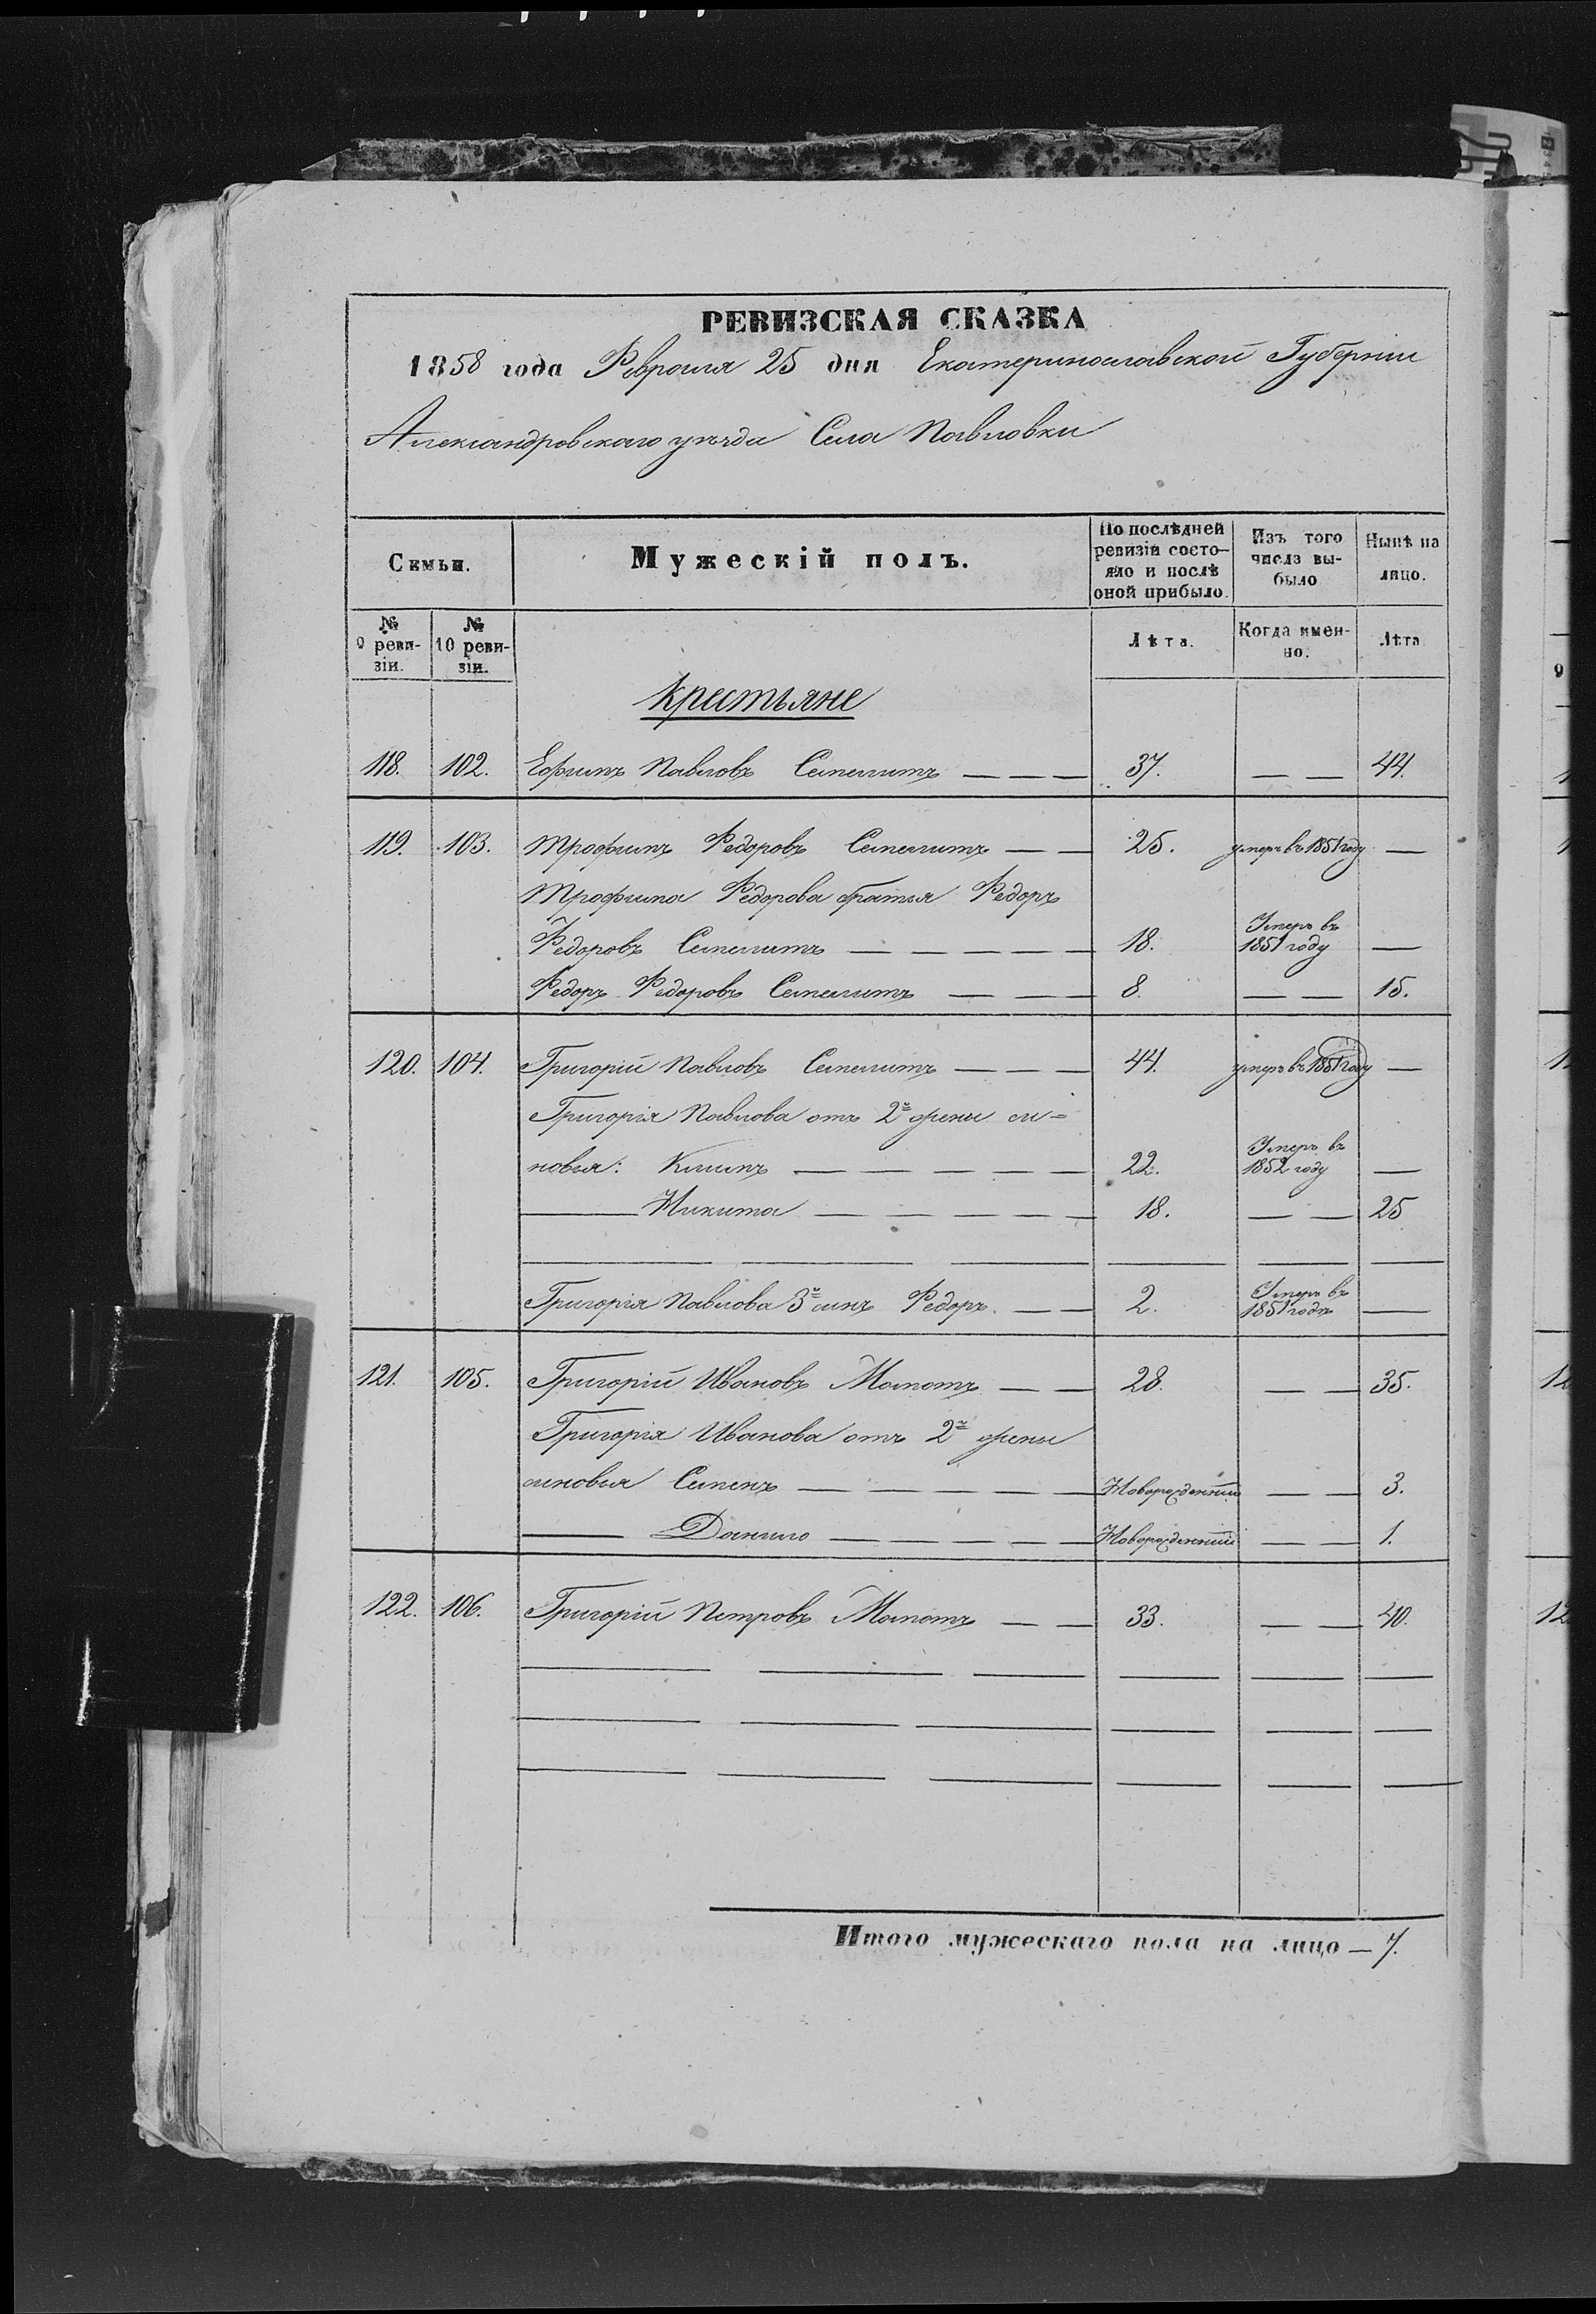 РЕВИЗСКАЯ СКАЗКА
1858 года Февраля 25 дня Екатеринославской Губерніи
Александровскаго уѣзда Села Павловки
Семьи. Мужескій полъ. По послѣдней ревизіи состояло и послѣ оной прибыло. Изъ того числа выбыло Нынѣ на лицо.
№ 9 ревизіи. № 10 ревизіи. Лѣта. Когда именно. Лѣта
Крестьяне
118. 102. Ефимъ Павловъ — — — 37. — — 44.
119. 103. Трофимъ Федоровъ — — 25. умеръ въ 1851 году —
Трофима Федорова братья Федоръ
Федоровъ — — — — — 18. Умеръ въ 1851 году —
Федоръ Федоровъ — — 8. — — 15.
120. 104. Григорій Павловъ — — — 44. умеръ въ 1851 году —
Григорія Павлова отъ 2й жены сы=
новья: Климъ — — — — — 22. Умеръ въ 1852 году —
— Никита — — — — — 18. — — 25
Григорія Павлова 3й сынъ Федоръ. — — 2. Умеръ въ 1851 годѣ —
121. 105. Григорій Ивановъ Мамотъ — — 28. — — 35.
Григорія Иванова отъ 2й жены
сыновья Семенъ — — — — — Новорожденный — — 3.
— Данило — — — — — Новорожденный — — 1.
122. 106. Григорій Петровъ Мамотъ — — 33. — — 40.
Итого мужескаго пола на лицо — 7.